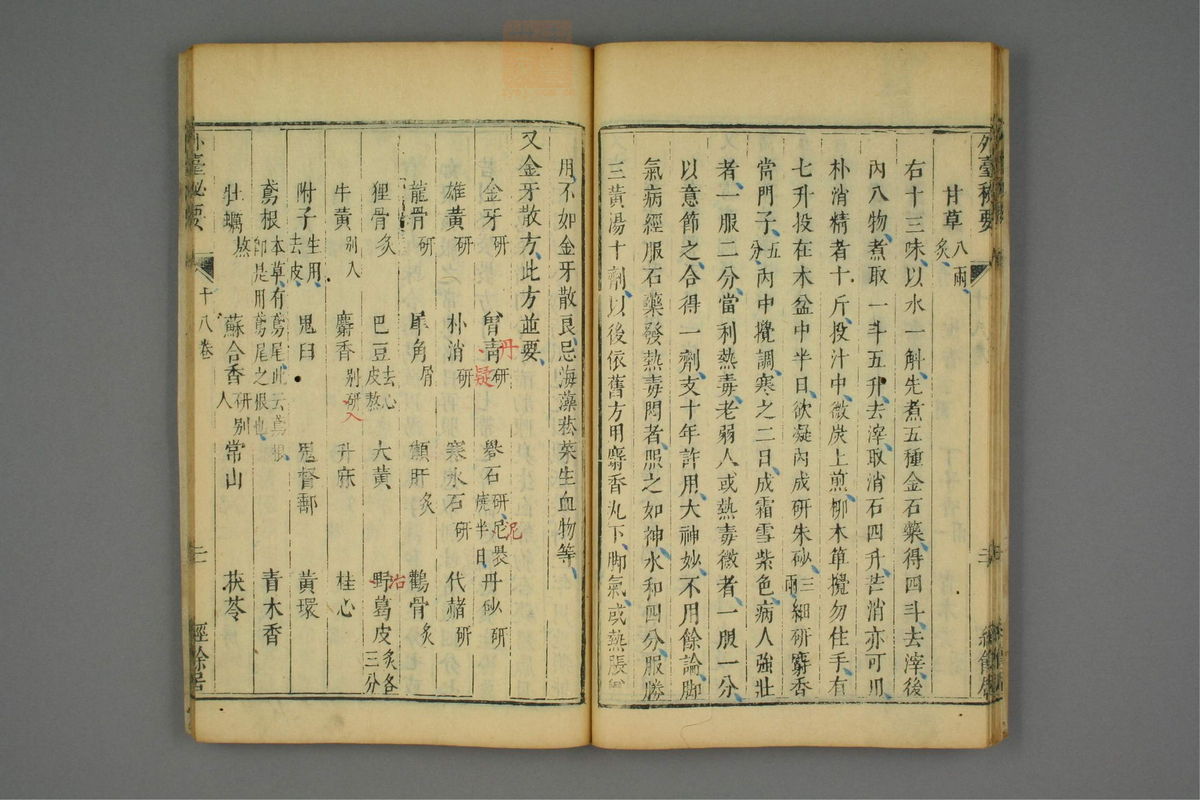 外臺秘要
二十
經餘居
甘草炙八兩
右十三味以水一斛先煮五種金石藥得四斗去滓後
內八物煮取一斗五升去滓取消石四升芒消亦可用
朴消精者十斤投汁中微炭上煎柳木箄攪勿住手有
七升投在木盆中半日欲凝內成研朱砂三兩細研麝香
當門子五分內中攪調寒之二日成霜雪紫色病人強壯
者一服二分當利熱毒老弱人或熱毒微者一服一分
以意節之合得一劑支十年許用大神妙不用餘論脚
氣病經服石藥發熱毒悶者服之如神水和四分服勝
三黃湯十劑以後依舊方用麝香丸下脚氣或熱脹
用不如金牙散良忌海藻菘菜生血物等
又金牙散方此方並要
金牙研 曾青研 礜石研泥裹燒半日 丹砂研
丹疑
泥
雄黃研 朴消研 寒水石研 代赭研
龍骨研 犀角屑 獺肝炙 鸛骨炙
狸骨炙 巴豆去心皮熬 大黃 野葛皮炙各三分
冶
牛黃別入 麝香別研 升麻 桂心
入
附子生用去皮 鬼臼 鬼督郵 黃環
鳶根本草有鳶尾此云鳶根卽是用鳶尾之根也 青木香
牡蠣熬 蘇合香研別入 常山 茯苓
外臺秘要
十八卷
二十
經餘居